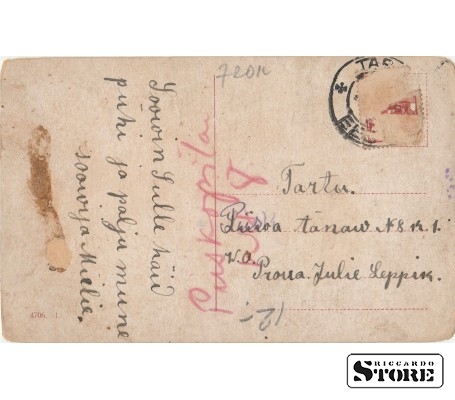 720k
Soowin Sulle häid
pühi ja palju mune
soowija Miilie.
TAR
EE
Tartu.
tänaw N8 k.1.
V.O.
Proua. Julie Leppik.
12-
4706. 1.
RICCARDO
STORE